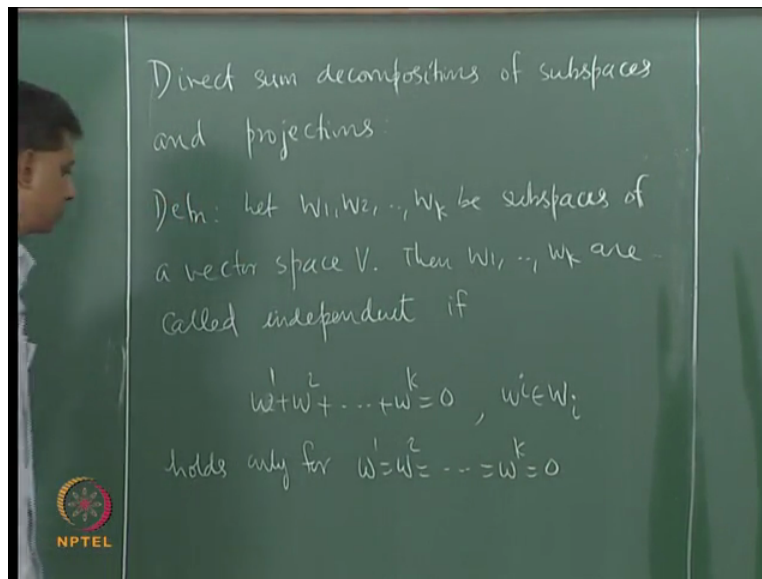 Direct sum decompositions of subspaces
and projections:
Defn: Let W1, W2, .., Wk be subspaces of
a vector space V. Then W1, .., Wk are
called independent if
w¹+w²+ . . . +wᵏ=0 , wⁱ∈Wᵢ
holds only for w¹=w²= . . . =wᵏ=0
NPTEL